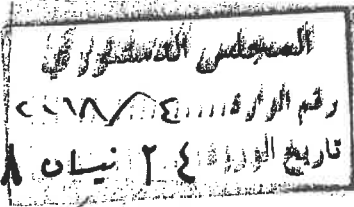 المجلس الدستوري
رقم الوارد ٤ / ٢٠١٨
تاريخ الورود ٢٤ نيسان ٨